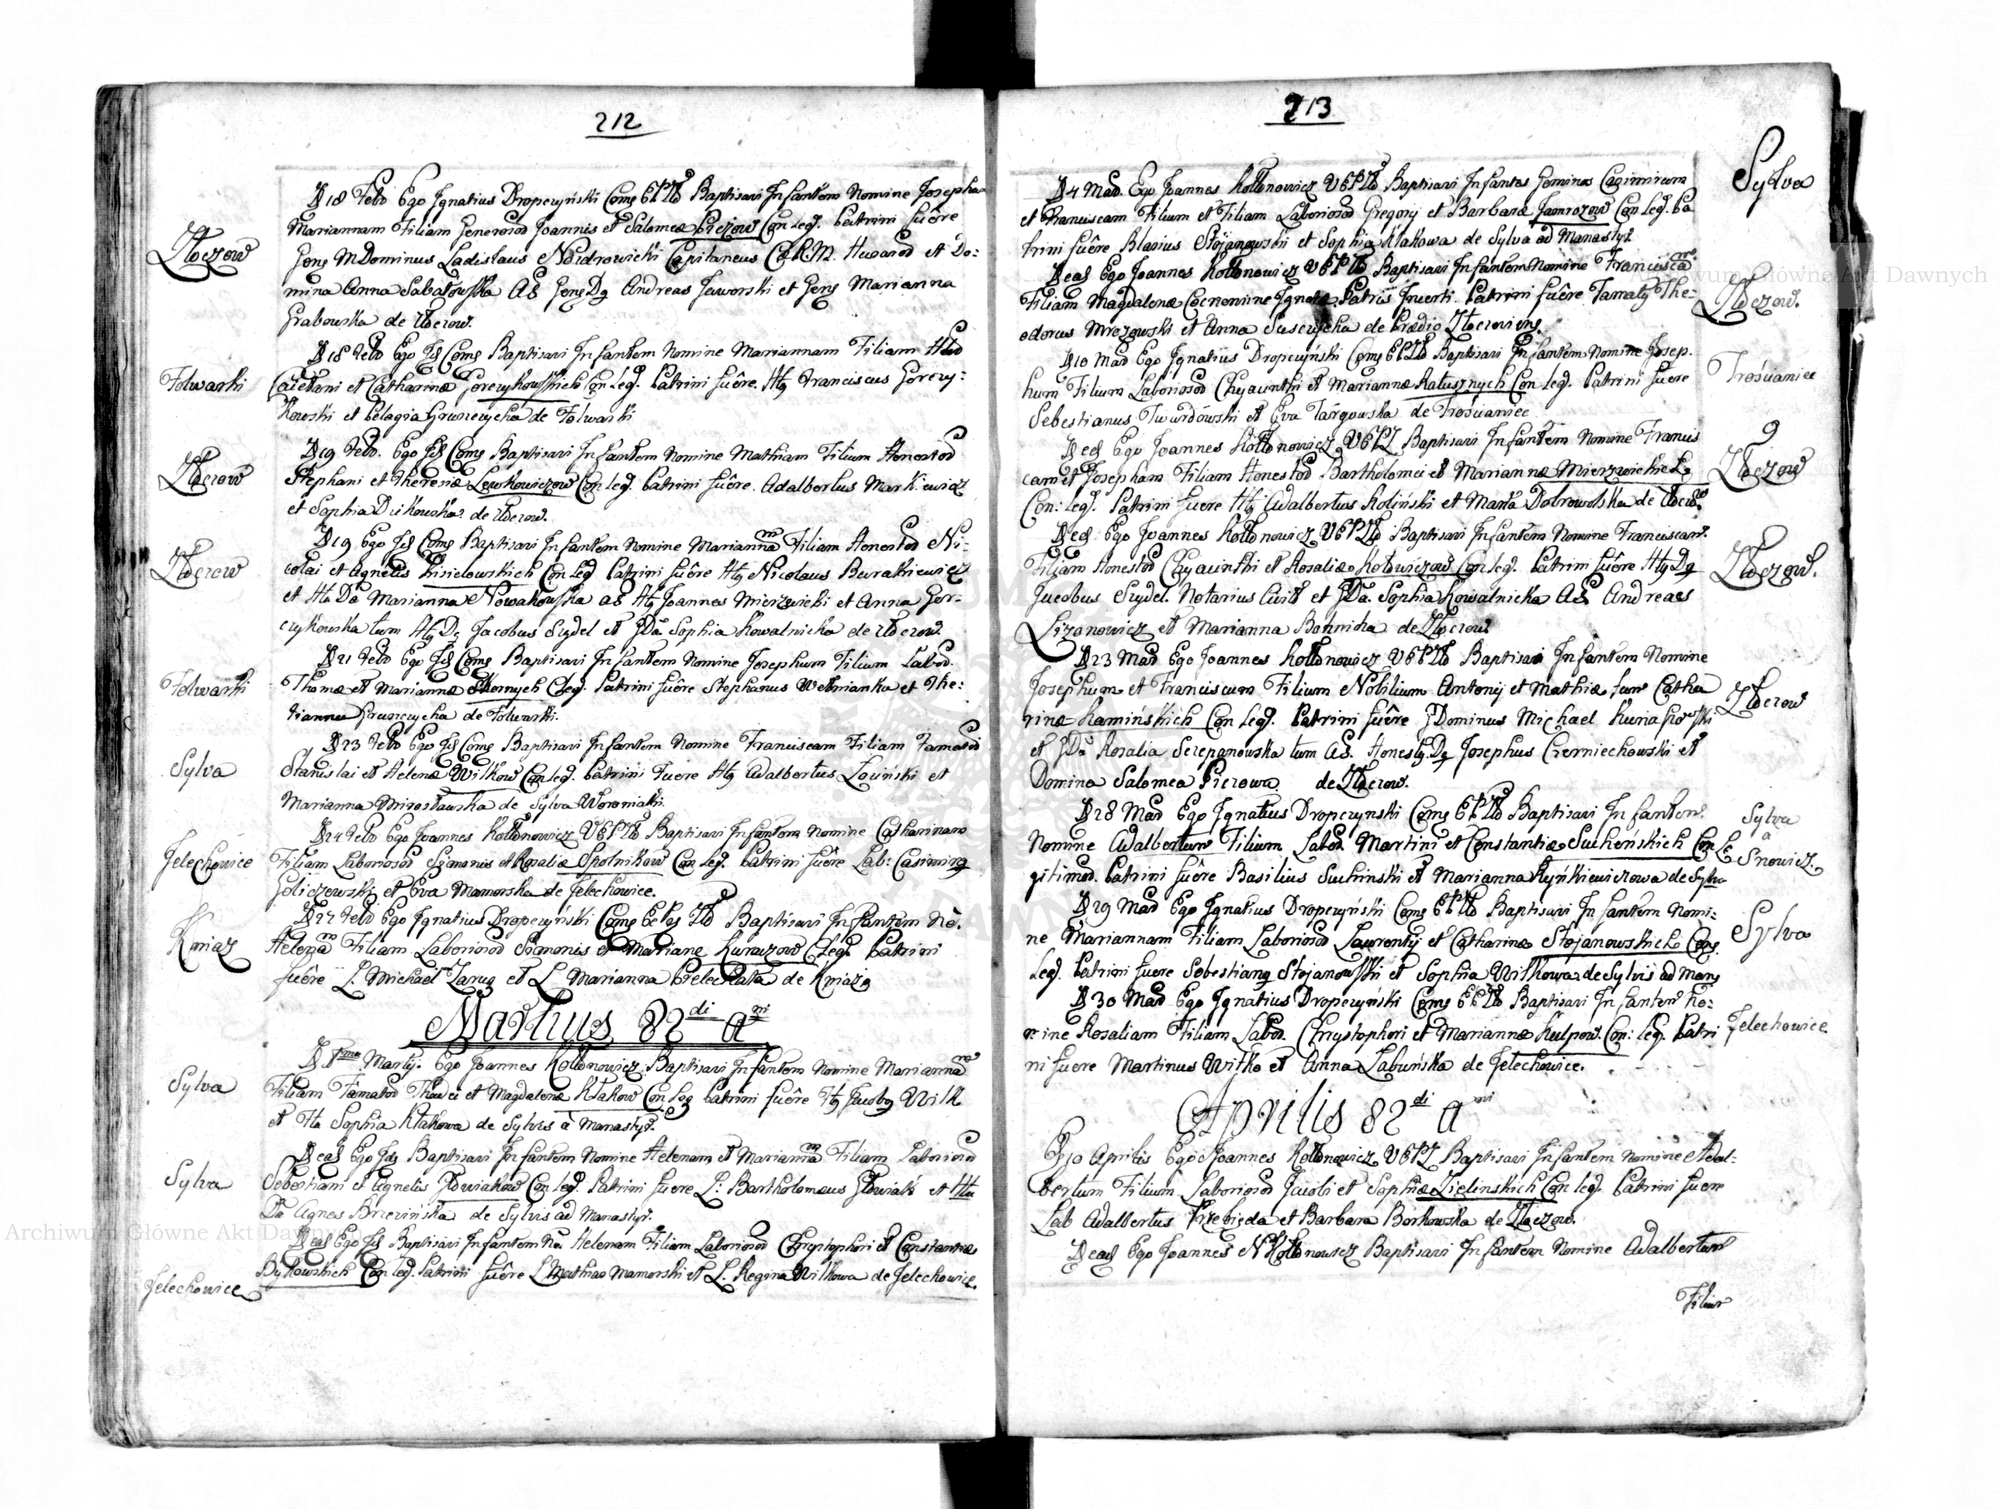 212
Złoczow
D 18 Febr Ego Ignatius Dropczyński Coms E P Zło Baptisavi Infantem Nomine Josepham
Mariannam Filiam Generosor Joannis et Salomeæ Piczow Con Leg. Patrini fuêre
Gens MDominus Ladislaus Capitaneus C.R.M. Husaror et Do-
mina Anna Sabatowska As Gens Dg Andreas Jaworski et Gens Marianna
Grabowska de Złoczow.
Folwarki
D 18 Febr Ego Ids Coms Baptisavi Infantem Nomine Mariannam Filiam
Caietani et Catharinæ Gorczykowskich Con Leg. Patrini fuêre. Franciscus Gorczy-
kowski et Pelagia Gruszczycha de Folwarki
Złoczow
D 19 Febr. Ego Ids Coms Baptisavi Infantem Nomine Mathiam Filium Honestor
Stephani et Theresiæ Lewkowiczow Con Leg. Patrini fuêre. Adalbertus Markiewicz
et Sophia Dzikowska de Złoczow.
Złoczow
D 19 Ego Ids Coms Baptisavi Infantem Nomine Mariannam Filiam Honestor Ni-
colai et Agnetis Kisielowskich Con Leg. Patrini fuêre Hg Nicolaus Burakiewicz
et Da Marianna Nowakowska as Hg Joannes Mierzwicki et Anna Gor-
czykowska tum Hg Dg Jacobus Szydel et Da Sophia Kowalnicka de Złoczow
Folwarki
D 21 Febr Ego Ids Coms Baptisavi Infantem Nomine Josephum Filium Labor.
Thomæ et Mariannæ C Leg. Patrini fuêre Stephanus Wetnianka et The-
Gruszczycha de Folwarki.
Sylva
D 23 Febr Ego Ids Coms Baptisavi Infantem Nomine Franciscam Filiam Famator
Stanislai et Helenæ Wilkow Con Leg. Patrini Fuere Hg Adalbertus Łoziński et
Marianna Mirosławska de Sylva Woroniaki.
Jelechowice
D 24 Febr Ego Joannes Kołłonowicz V E P Zło Baptisavi Infantem Nomine Catharinam
Filiam Laboriosor Szymonis et Rosaliæ Spolnikow Con Leg. Patrini fuêre Lab: Casimirg
Goliczewski et Eva Mamorska de Jelechowice.
Kniaz
D 22 Febr Ego Ignatius Dropczyński Coms Baptisavi Infantem No.
Helenam Filiam Laboriosor Simonis et Marianæ Kurnizow C Leg. Patrini
fuêre L. Michael et L. Marianna de Kniaze
Martius 82di ani
Sylva
D 1ma Martij. Ego Joannes Kołłonowicz Baptisavi Infantem Nomine Mariannam
Filiam Famator Thadei et Magdalenæ Kłakow Con Leg Patrini fuêre Hg Jacobg Wilk
et Sophia Kłakowa de Sylvis à Monastyr.
Sylva
D ead Ego Ids Baptisavi Infantem Nomine Helenam et Mariannam Filiam Laborioso
Sebestiani et Agnetis Głowiakow Con Leg. Patrini fuere L: Bartholomæus Głowiak et
Da Agnes Brzezińska de Sylvis ad Monastyr.
Jelechowice
D ead Ego Ids Baptisavi Infantem No Helenam Filiam Laboriosor Chrystophori et Constantiæ
Bykowskich Con Leg. Patrini fuêre L Mathias Mamorski et L. Regina Wilkowa de Jelechowice.
213
Sylva
D 4 Mar. Ego Joannes Kołłonowicz V E P Zło Baptisavi Infantes Geminos Cazimirum
et Franciscam Filium et Filiam Laboriosor Gregorij et Barbaræ Jamrozow Con Leg. Pa
trini fuêre Blasius Stojanowski et Sophia Kłakowa de Sylva ad Monastyr
Złoczow.
D ead Ego Joannes Kołłonowicz V E P Zło Baptisavi Infantem Nomine Franciscam
Filiam Magdalenæ Cocnomine Ignotæ Patris Incerti. Patrini fuêre Famatg The-
odorus Mrozowski et Anna Suszczycha de Prædio Złoczoviens.
Trościaniec
D 10 Mar Ego Ignatius Dropczyński Coms E P Zło Baptisavi Infantem Nomine Josep-
hum Filium Laboriosor Chyacinthi et Mariannæ Ratusznych Con Leg. Patrini fuere
Sebestianus Twardowski et Eva Targowska de Trościaniec
Złoczow
D ead Ego Joannes Kołłonowicz V E P Z Baptisavi Infantem Nomine Francis
cam et Josepham Filiam Honestor Bartholomei et Mariannæ Mierzwickie
Con: Leg. Patrini fuere Hg Adalbertus Koliński et Maria Dobrowolska de Złocz
Złoczow.
D ead Ego Joannes Kołłonowicz V E P Zło Baptisavi Infantem Nomine Franciscam
Filiam Honestor Chyacinthi et Rosaliæ Kotowiczow Con Leg. Patrini fuêre Hg Dg
Jacobus Szydel. Notarius Civis et Da. Sophia Kowalnicka As Andreas
Lizonowicz et Marianna Bonnicka de Złoczow
Złoczow
D 23 Mar Ego Joannes Kołłonowicz V E P Zło Baptisavi Infantem Nomine
Josephum et Franciscum Filium Nobilium Antonij et Mathiæ Catha
rinæ Kamińskich Con Leg. Patrini fuêre GDominus Michael Kuriakowski
et Da Rosalia Szczepanowska tum As. Honestg Dg Josephus Czerniechowski et
Domina Salomea Piczowa de Złoczow.
Sylva
a
Snowicz.
D 28 Mar Ego Ignatius Dropczynski Coms E P Zło Baptisavi Infantem
Nomine Adalbertum Filium Labor Martini et Constantiæ Sucheńskich Con Le
gitimor. Patrini fuêre Basilius Suchinski et Marianna Ryńkiewiczowa de Sylva
Sylva
D 29 Mar Ego Ignatius Dropczyński Coms E P Zło Baptisavi Infantem Nomi-
ne Mariannam Filiam Laboriosor Laurentij et Catharinæ Stojanowskich Con
Leg. Patrini fuere Sebestiang Stojanowski et Sophia Witkowa de Sylvis ad Mons
Jelechowice
D 30 Mar Ego Ignatius Dropczyński Coms E P Zło Baptisavi Infantem No-
mine Rosaliam Filiam Labor. Chrystophori et Mariannæ Kulpow. Con: Leg. Patri
ni fuere Martinus Witko et Anna Labuńska de Jelechowice.
Aprilis 82di ani
D 10 Aprilis Ego Joannes Kołłonowicz V E P Z Baptisavi Infantem Nomine Adal-
bertum Filium Laboriosor Jacobi et Sophiæ Zielinskich Con Leg. Patrini fuere
Lab Adalbertus Przebięda et Barbara Borkowska de Złoczow.
D ead Ego Joannes N Kołłonowicz Baptisavi Infantem Nomine Adalbertum
Filium
Archiwum Główne Akt Dawnych
Archiwum Główne Akt Dawnych